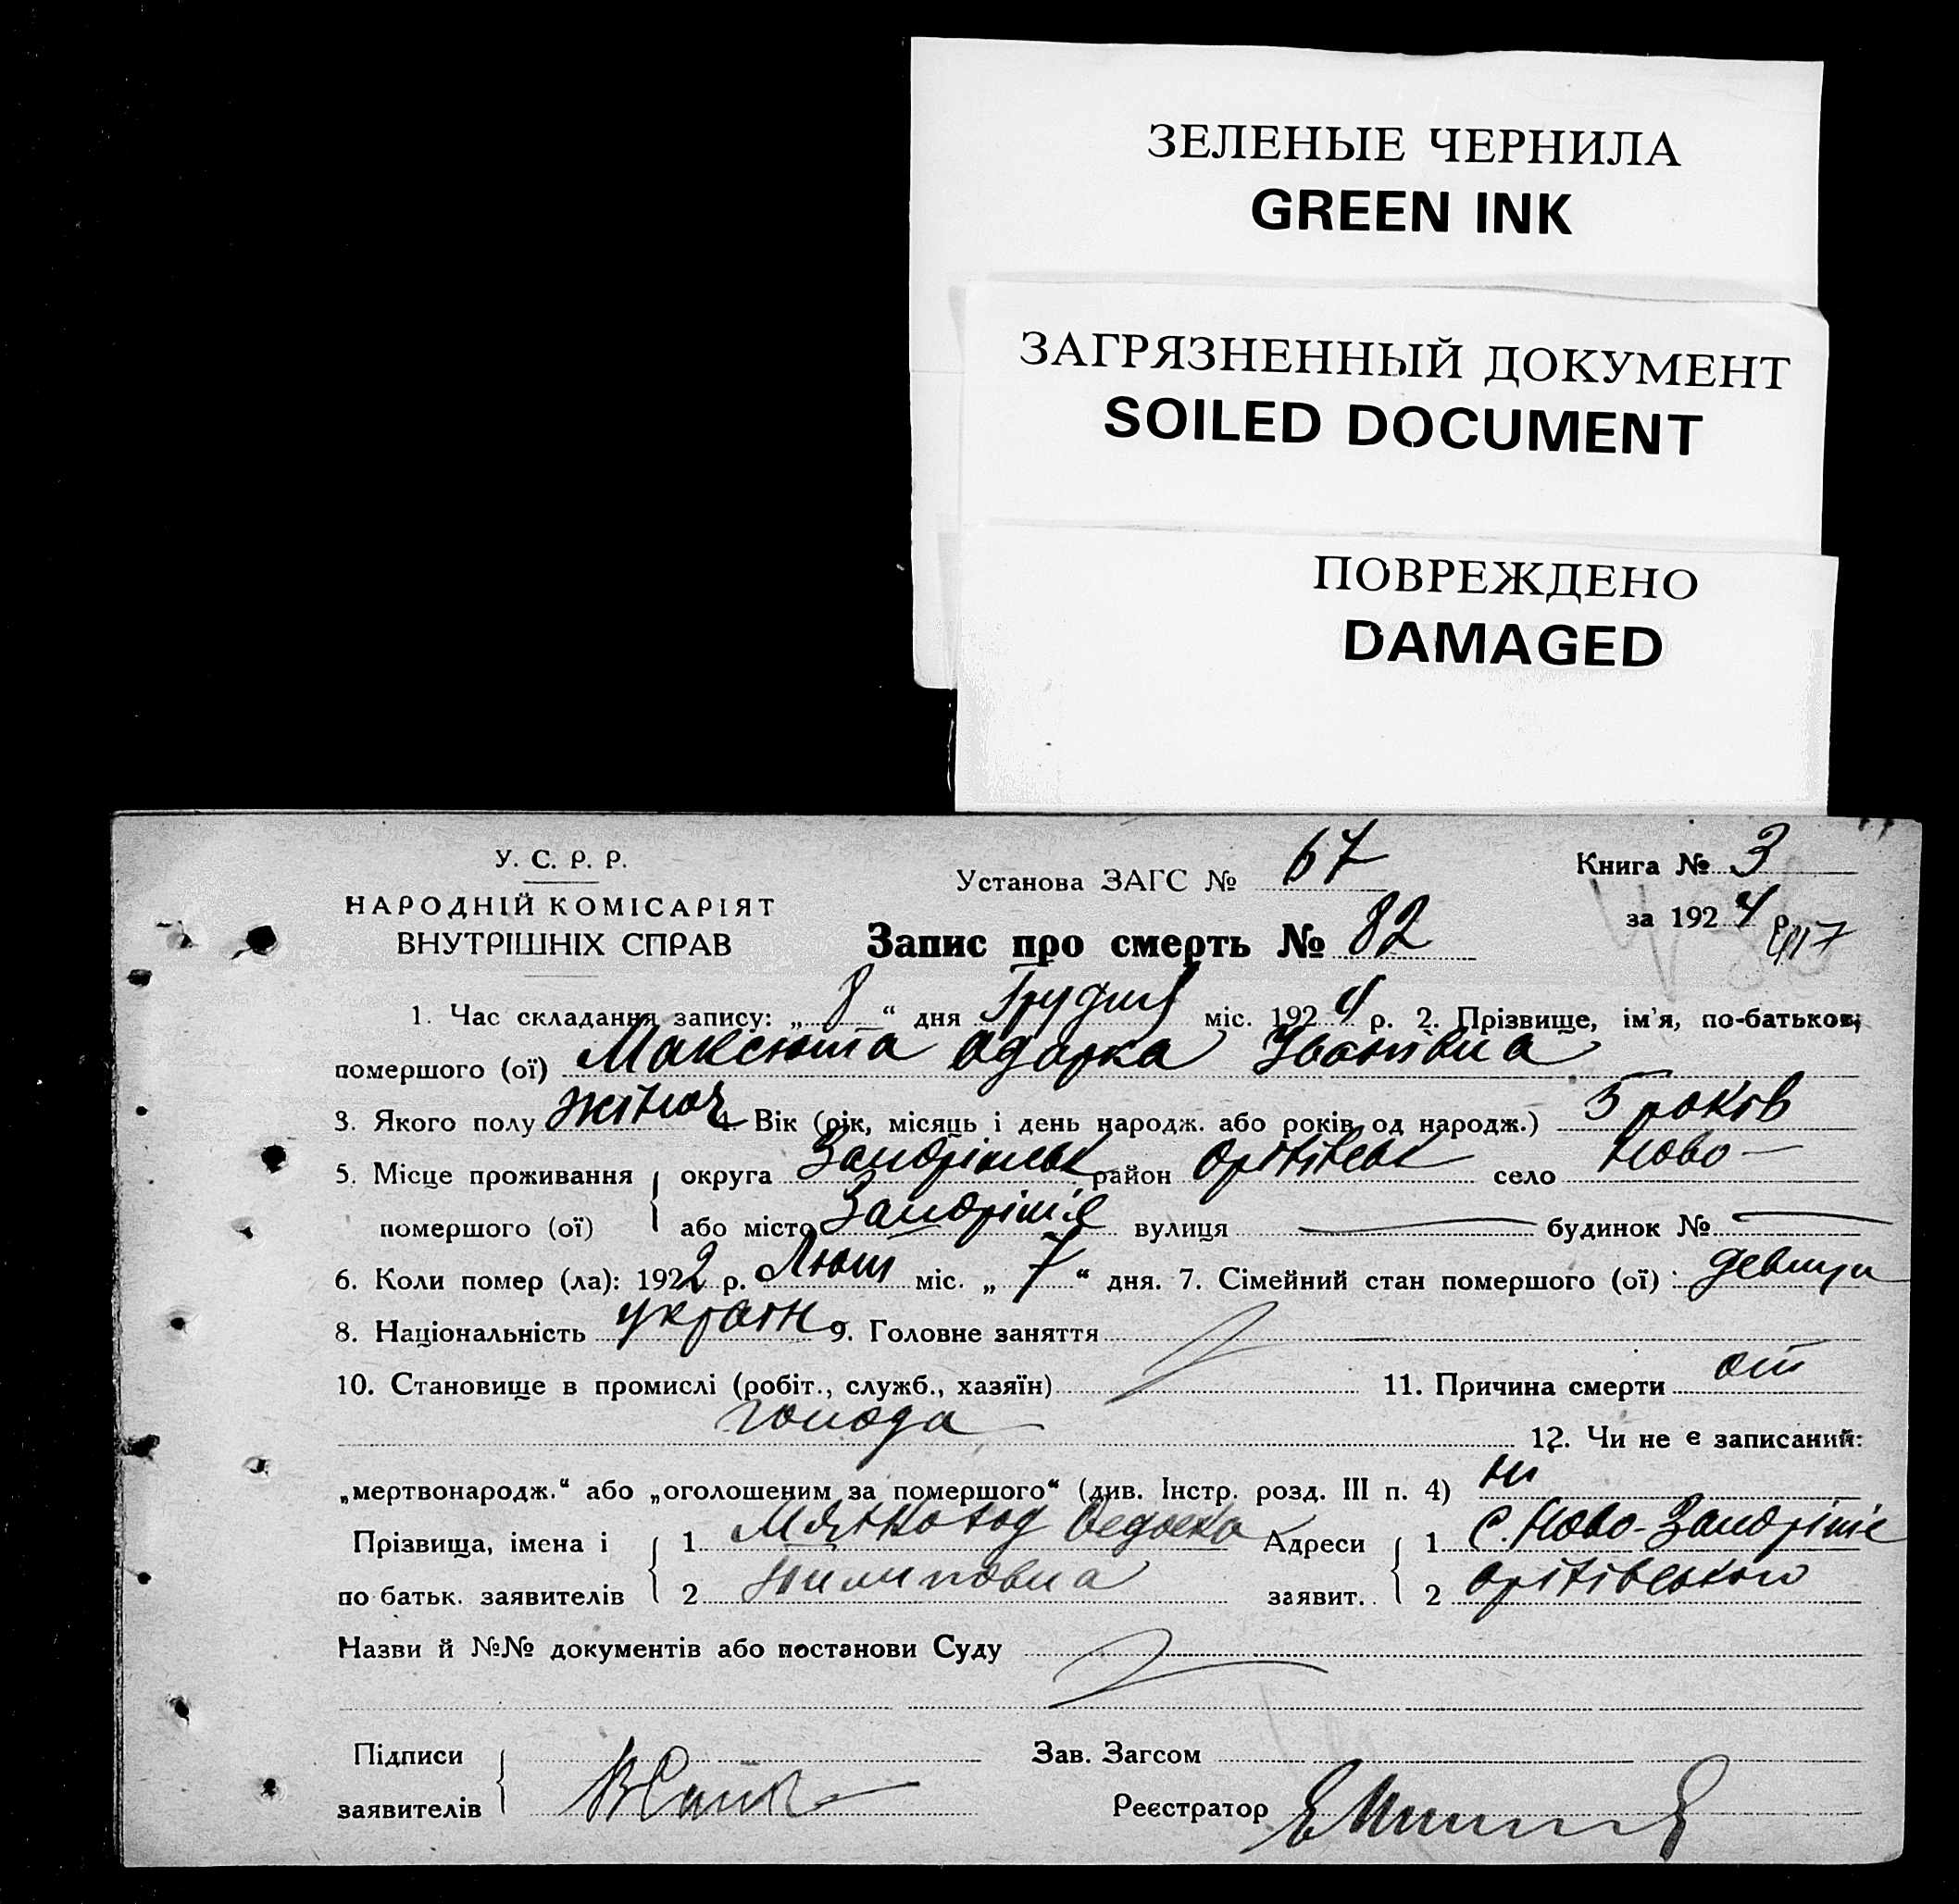 ЗЕЛЕНЫЕ ЧЕРНИЛА
GREEN INK
ЗАГРЯЗНЕННЫЙ ДОКУМЕНТ
SOILED DOCUMENT
ПОВРЕЖДЕНО
DAMAGED
У. С. Р. Р.
НАРОДНІЙ КОМІСАРІЯТ
ВНУТРІШНІХ СПРАВ
Установа ЗАГС № 67
Книга № 3
за 1924 р.
Запис про смерть № 82
1. Час складання запису: „ 8 “ дня Грудня міс. 1924 р. 2. Прізвище, ім'я, по-батькові
помершого (ої) Максюта Одарка Іванівна
3. Якого полу жіноч 4. Вік (рік, місяць і день народж. або років од народж.) 5 років
5. Місце проживання округа Запоріжськ район Оріхівськ село Ново-
помершого (ої) або місто Запоріжіє вулиця — будинок № —
6. Коли помер (ла): 1922 р. Лют міс. „ 7 “ дня. 7. Сімейний стан помершого (ої) девиця
8. Національність україн 9. Головне заняття
10. Становище в промислі (робіт., служб., хазяїн) 11. Причина смерти от
голода
12. Чи не є записаний:
„мертвонародж.“ або „оголошеним за помершого“ (див. Інстр. розд. III п. 4) ні
Прізвища, імена і 1 Адреси 1 с. Ново-Запоріжіє
по батьк. заявителів 2 Пилиповна заявит. 2 Оріхівського
Назви й №№ документів або постанови Суду
Підписи Зав. Загсом
заявителів Реєстратор